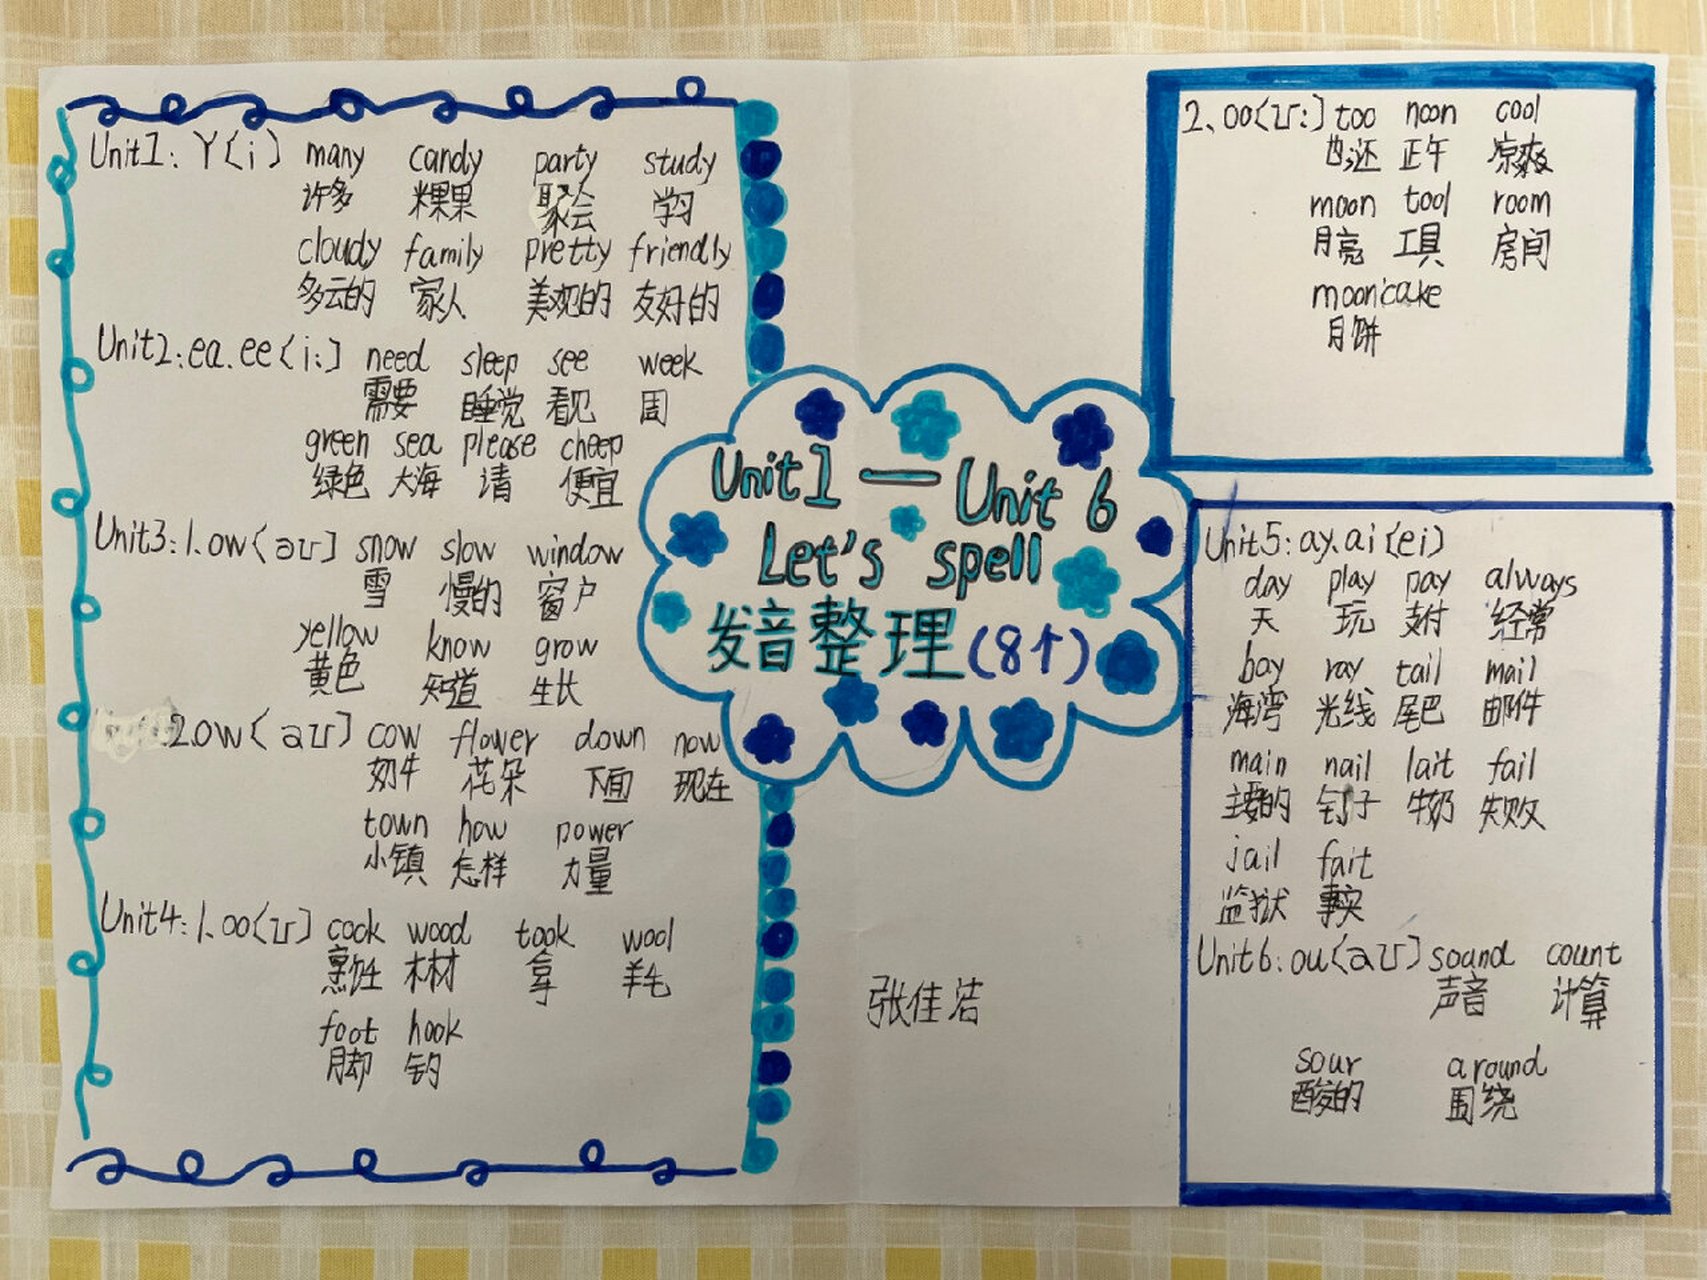 Unit1: Y(i) many candy party study
许多 粿果 聚会 学习
cloudy family pretty friendly
多云的 家人 美观的 友好的
Unit2: ea.ee(i:) need sleep see week
需要 睡觉 看见 周
green sea please cheep
绿色 大海 请 便宜
Unit3: 1.ow(əʊ) snow slow window
雪 慢的 窗户
yellow know grow
黄色 知道 生长
2.ow(aʊ) cow flower down now
奶牛 花朵 下面 现在
town how power
小镇 怎样 力量
Unit4: 1.oo(ʊ) cook wood took wool
烹饪 木材 拿 羊毛
foot hook
脚 钩
Unit1 — Unit 6
Let's spell
发音整理(8个)
张佳洁
2、oo(ʊ:) too noon cool
也;还 正午 凉爽
moon tool room
月亮 工具 房间
mooncake
月饼
Unit5: ay.ai(ei)
day play pay always
天 玩 支付 经常
bay ray tail mail
海湾 光线 尾巴 邮件
main nail lait fail
主要的 钉子 牛奶 失败
jail fait
监狱 事实
Unit6: ou(aʊ) sound count
声音 计算
sour around
酸的 围绕